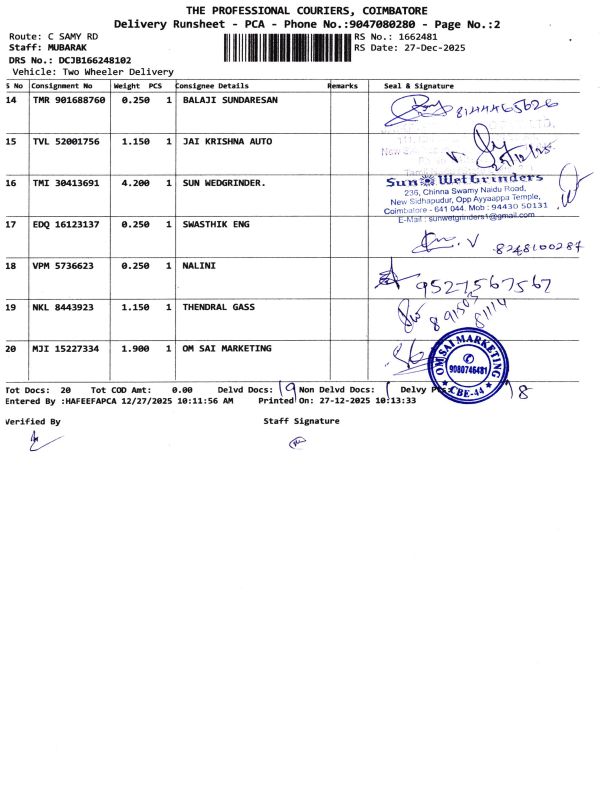 THE PROFESSIONAL COURIERS, COIMBATORE
Delivery Runsheet - PCA - Phone No.:9047080280 - Page No.:2
Route: C SAMY RD
RS No.: 1662481
Staff: MUBARAK
RS Date: 27-Dec-2025
DRS No.: DCJB166248102
Vehicle: Two Wheeler Delivery
S No Consignment No Weight PCS Consignee Details Remarks Seal & Signature
14 TMR 901688760 0.250 1 BALAJI SUNDARESAN
15 TVL 52001756 1.150 1 JAI KRISHNA AUTO
27/12/25
16 TMI 30413691 4.200 1 SUN WEDGRINDER.
Sun WetGrinders
236, Chinna Swamy Naidu Road,
New Sidhapudur, Opp Ayyaappa Temple,
Coimbatore - 641 044. Mob : 94430 50131
E-Mail : sunwetgrinders1@gmail.com
17 EDQ 16123137 0.250 1 SWASTHIK ENG
8248100287
18 VPM 5736623 0.250 1 NALINI
9527567567
19 NKL 8443923 1.150 1 THENDRAL GASS
20 MJI 15227334 1.900 1 OM SAI MARKETING
OM SAI MARKETING
9080746481
CBE-44
Tot Docs: 20 Tot COD Amt: 0.00 Delvd Docs: 19 Non Delvd Docs: 1 Delvy 18
Entered By :HAFEEFAPCA 12/27/2025 10:11:56 AM Printed On: 27-12-2025 10:13:33
Verified By Staff Signature